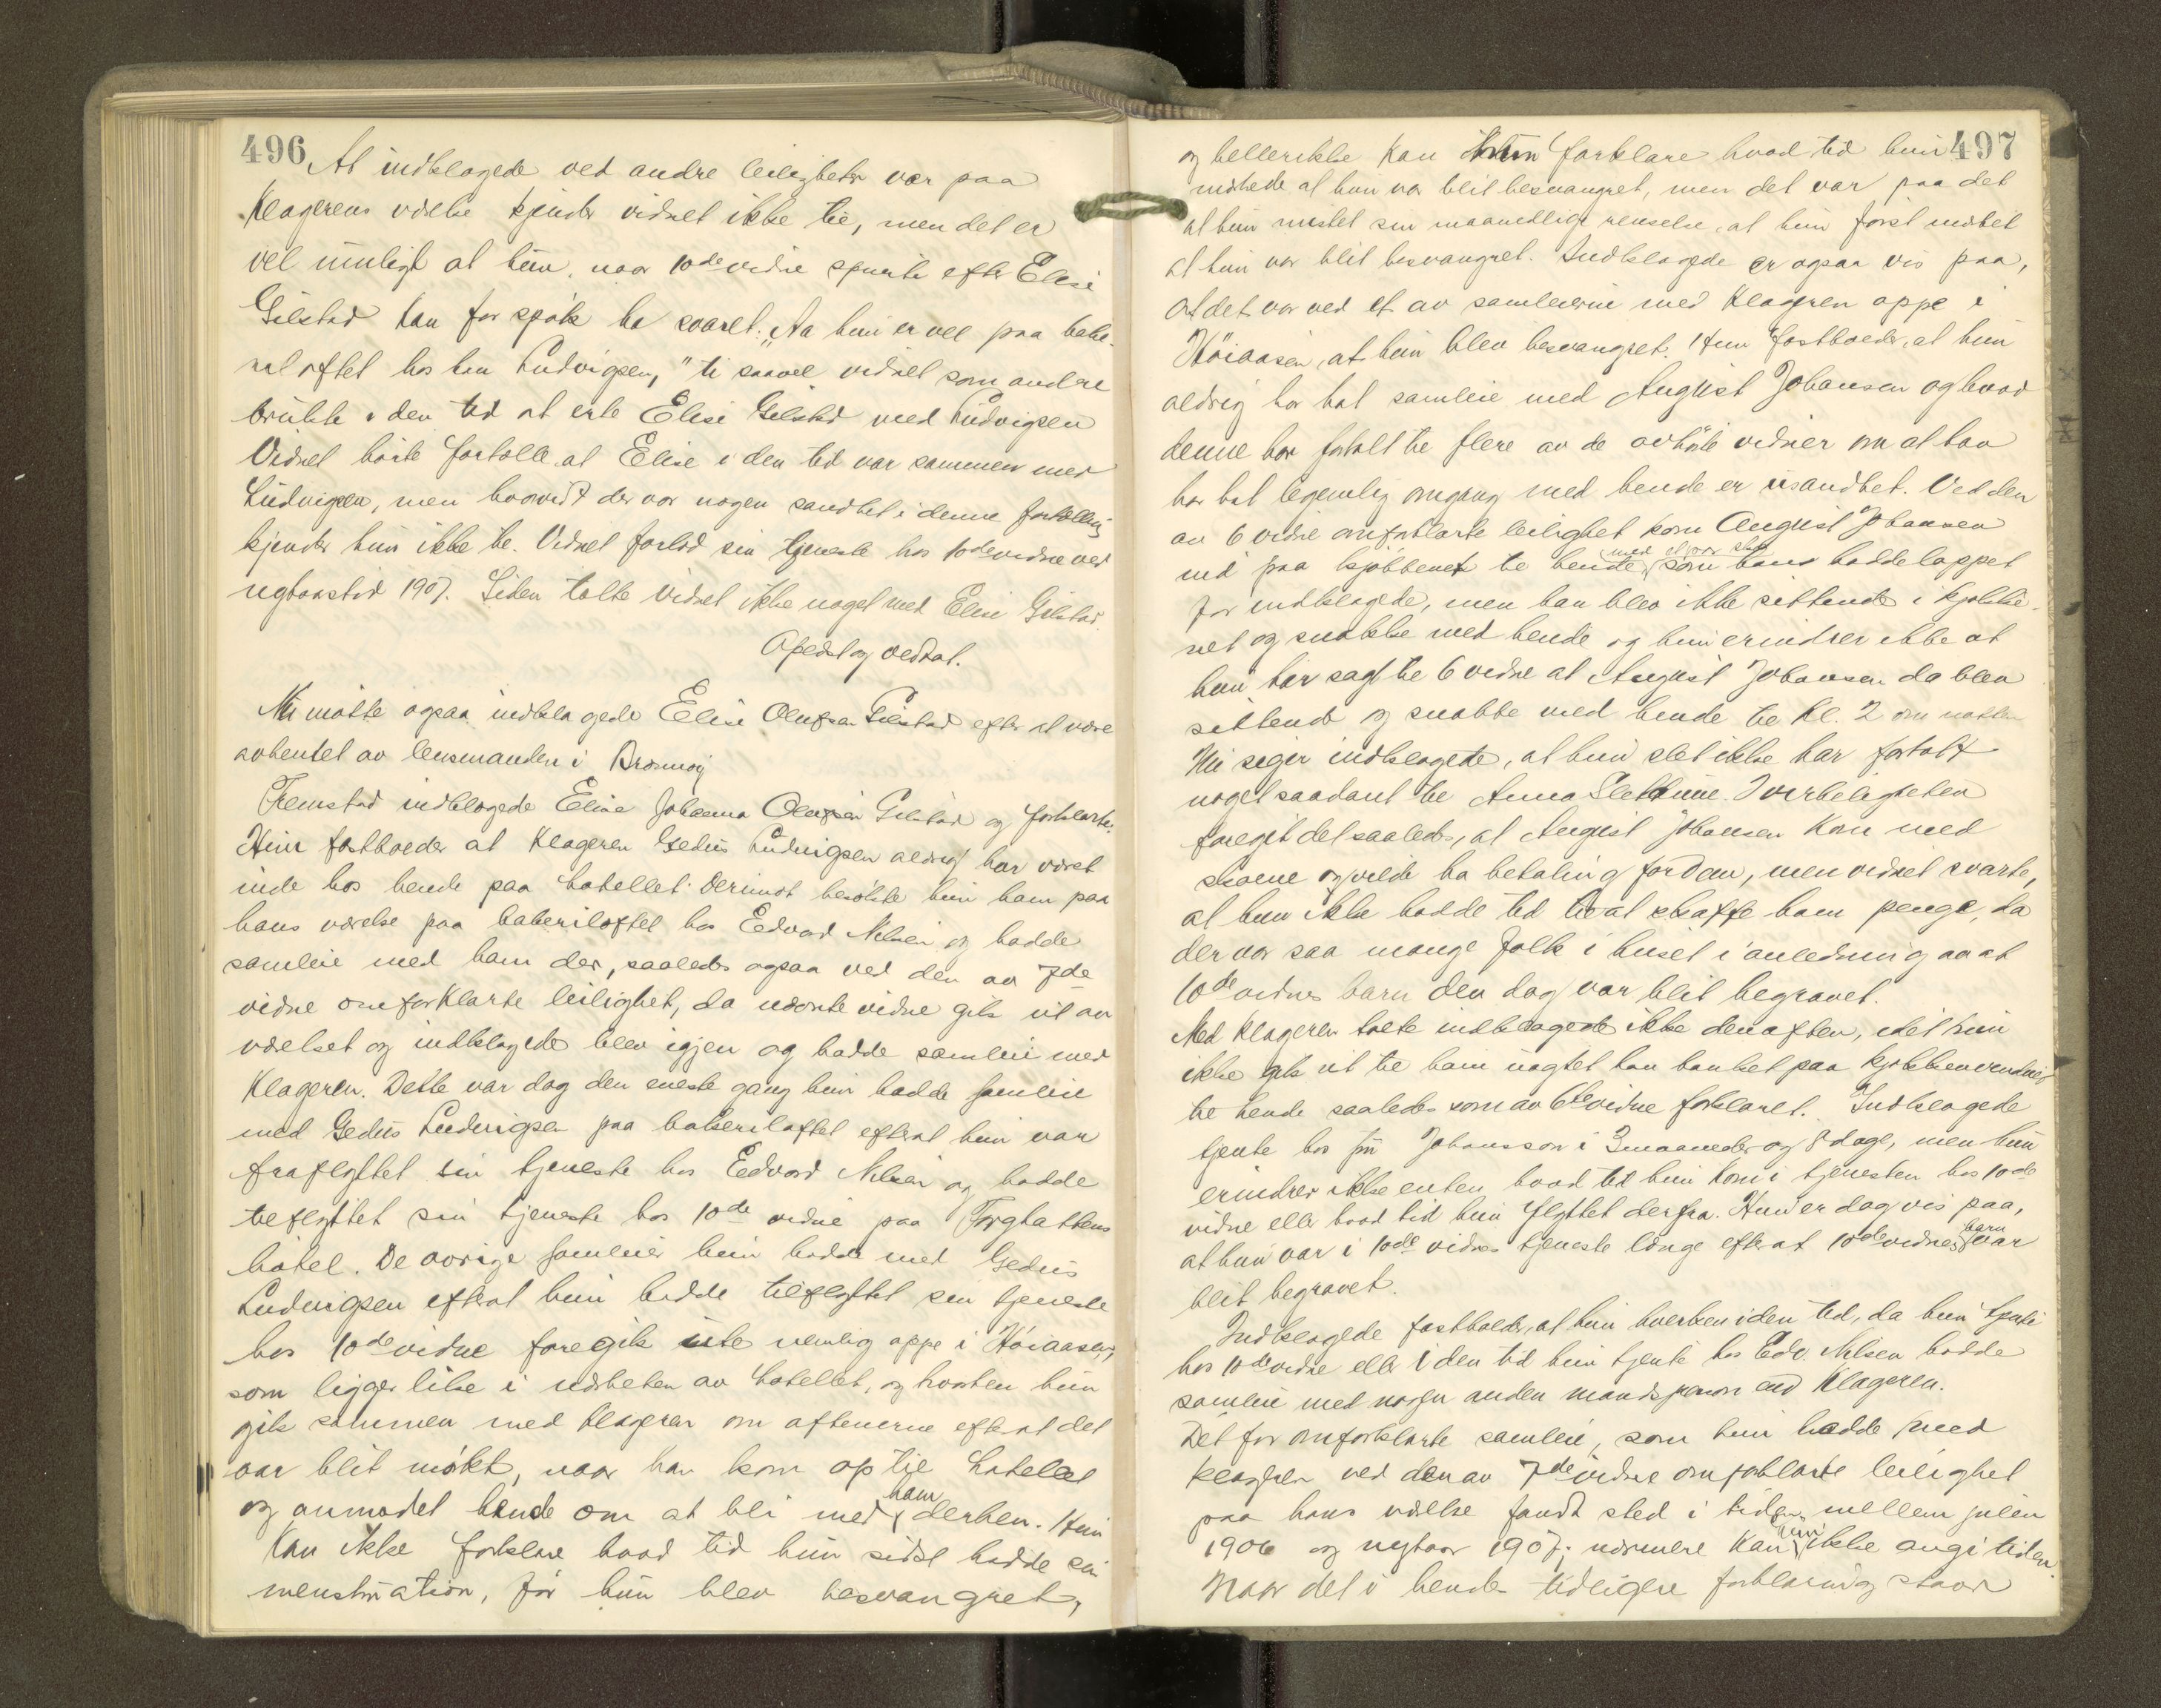 496
At indklagede ved andre leiligheter var paa
Klagerens værelse kjender vidnet ikke til, men det er
vel muligt at hun, naar 10de vidne spurte efter Elise
Gilstad kan for spøk ha svaret: „Aa hun er vel paa bake-
riloftet hos han Ludvigsen," ti saavel vidnet som andre
brukte i den tid at erte Elise Gilstad med Ludvigsen
Vidnet hørte fortalle at Elise i den tid var sammen med
Ludvigsen, men hvorvidt der var nogen sandhet i denne fortælling
kjender hun ikke til. Vidnet forlod sin tjeneste hos 10de vidne ved
nytaarstid 1907. Siden talte vidnet ikke noget med Elise Gilstad.
Oplæst og vedtat.
Nu møtte ogsaa indklagede Elise Olufsen Gilstad efter at være
avhentet av lensmanden i Brønnøy
Fremstod indklagede Elise Johanna Olufsen Gilstad og forklarte:
Hun fastholder at Klageren Gedius Ludvigsen aldrig har været
inde hos hende paa hotellet. Derimot besøkte hun ham paa
hans værelse paa bakeriloftet hos Edvard Nilsen og hadde
samleie med ham der, saaledes ogsaa ved den av 7de
vidne omforklarte leilighet, da nævnte vidne gik ut av
værelset og indklagede blev igjen og hadde samleie med
Klageren. Dette var dog den eneste gang hun hadde samleie
med Gedius Ludvigsen paa bakeriloftet efterat hun var
fraflyttet sin tjeneste hos Edvard Nilsen og hadde
tilflyttet sin tjeneste hos 10de vidne paa Torghattens
hotel. De øvrige samleier hun hadde med Gedius
Ludvigsen efterat hun hadde tilflyttet sin tjeneste
hos 10de vidne foregik ute nemlig oppe i Høiaasen,
som ligger like i nærheten av hotellet, og hvorhen hun
gik sammen med Klageren om aftenerne efterat det
var blit mørkt, naar han kom op til hotellet
og anmodet hende om at bli med ham derhen. Hun
kan ikke forklare hvad tid hun sidst hadde sin
menstruation, før hun blev besvangret,
497
og hellerikke kan hun forklare hvad tid hun
merkede at hun var blit besvangret, men det var paa det
at hun mistet sin maanedlige renselse, at hun først merket
at hun var blit besvangret. Indklagede er ogsaa vis paa,
at det var ved et av samleierne med Klageren oppe i
Høiaasen, at hun blev besvangret. Hun fastholder, at hun
aldrig har hat samleie med August Johansen og hvad
denne har fortalt til flere av de avhørte vidner om at han
har hat legemlig omgang med hende er usandhet. Ved den
av 6 vidne omforklarte leilighet kom August Johansen
ind paa kjøkkenet til hende med et par sko som hans hadde lappet
for indklagede, men han blev ikke sittende i kjøkke-
net og snakke med hende og hun erindrer ikke at
hun har sagt til 6 vidne at August Johansen da blev
sittende og snakke med hende til Kl. 2 om natten
Nu siger indklagede, at hun slet ikke har fortalt
noget saadant til Anna Slettime. I virkeligheten
foregik det saaledes, at August Johansen kom med
skoene og vilde ha betaling for dem, men vidnet svarte,
at hun ikke hadde tid til at skaffe ham penge, da
der var saa mange folk i huset i anledning av at
10de vidnes barn den dag var blit begravet.
Med Klageren talte indklagede ikke den aften, idet hun
ikke gik ut til ham uagtet han banket paa kjøkkenvinduet
til hende saaledes som av 6te vidne forklaret. Indklagede
tjente hos fru Johansson i 3 maaneder og 8 dage, men hun
erindrer ikke enten hvad tid hun kom i tjenesten hos 10de
vidne eller hvad tid hun flyttet derfra. Hun er dog vis paa,
at hun var i 10de vidnes tjeneste længe efter at 10de vidnes barn var
blit begravet.
Indklagede fastholder, at hun hverken i den tid, da hun tjente
hos 10de vidne eller i den tid hun tjente hos Edv. Nilsen hadde
samleie med nogen anden mandsperson end Klageren.
Det før omforklarte samleie, som hun hadde med
Klageren ved den av 7de vidne omforklarte leilighet
paa hans værelse fandt sted i tiden mellem julen
1906 og nytaar 1907; nærmere kan hun ikke angi tiden.
Naar det i hendes tidligere forklaring staar